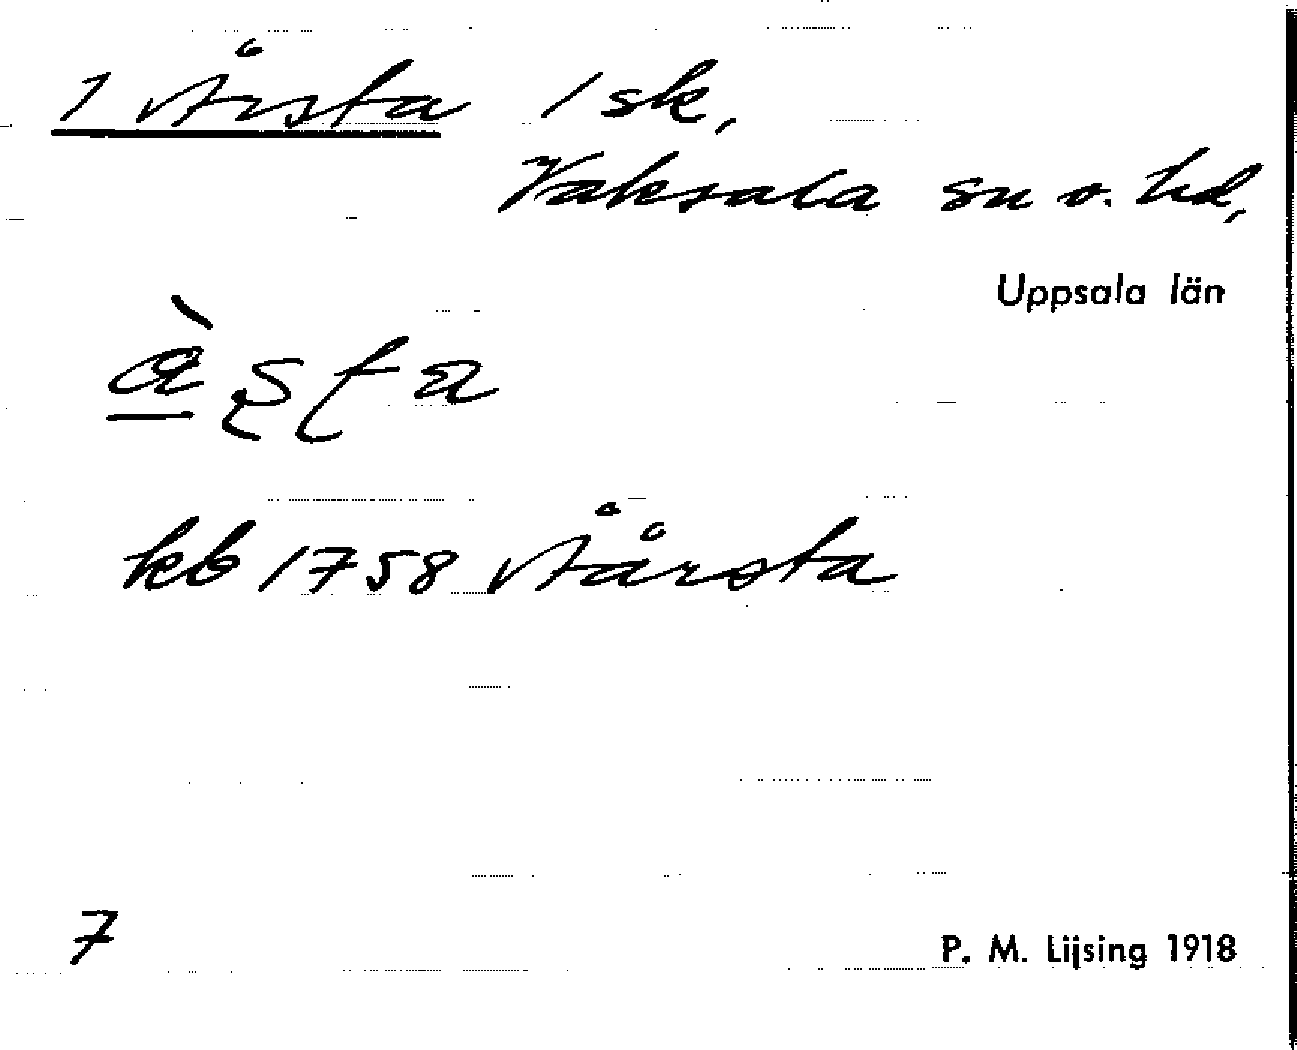 1 Årsta 1 sk,
Vaksala sn o. hd,
Uppsala län
kb 1758 Åårsta
7
P. M. Lijsing 1918